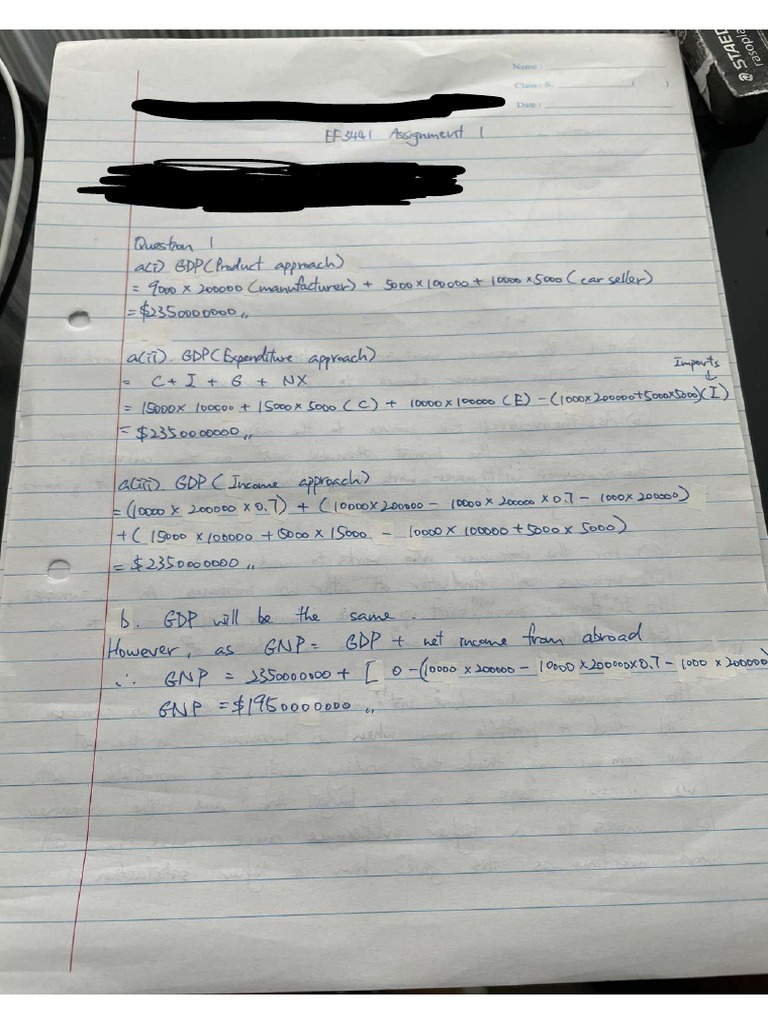 Name :
Class :
( )
Date :
STAED
rasopla
EF3441 Assignment 1
Question 1
a(i) GDP (Product approach)
= 9000 × 200000 (manufacturer) + 5000 × 100000 + 10000 × 5000 (car seller)
= $2350000000,,
a(ii). GDP (Expenditure approach)
Imports
↓
= C + I + G + NX
= 15000 × 100000 + 15000 × 5000 (C) + 10000 × 100000 (E) - (1000 × 200000 + 5000 × 5000) (I)
= $2350000000,,
a(iii). GDP (Income approach)
= (10000 × 200000 × 0.7) + (10000 × 200000 - 10000 × 200000 × 0.7 - 1000 × 200000)
+ (15000 × 100000 + 5000 × 15000 - 10000 × 100000 + 5000 × 5000)
= $2350000000,,
b. GDP will be the same.
However, as GNP = GDP + net income from abroad
∴ GNP = 2350000000 + [ 0 - (10000 × 200000 - 10000 × 200000 × 0.7 - 1000 × 200000)
GNP = $1950000000,,